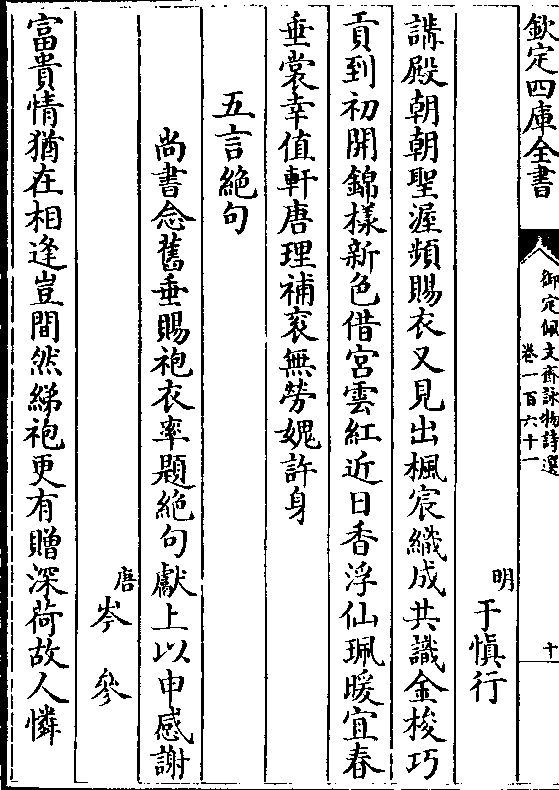 欽定四庫全書
御定佩文齋詠物詩選
卷一百六十一
十
明
于慎行
講殿朝朝聖渥頻賜衣又見出楓宸織成共識金梭巧
貢到初開錦様新色借宮雲紅近日香浮仙珮暖宜春
垂裳幸值軒唐理補衮無勞媿許身
五言絶句
尚書念舊垂賜袍衣率題絶句獻上以申感謝
唐
岑參
富貴情猶在相逢豈間然綈袍更有贈深荷故人憐